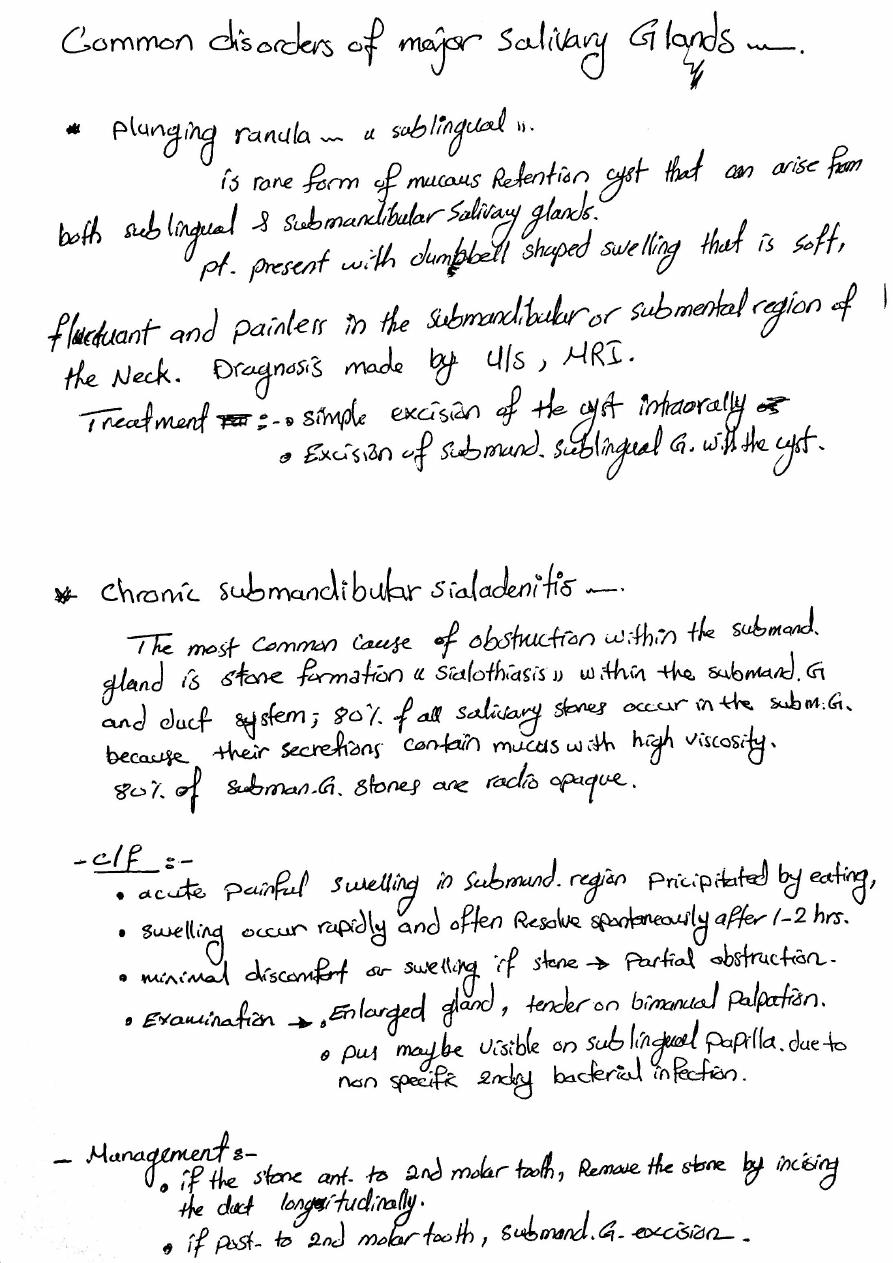 Common disorders of major Salivary Glands.
* Plunging ranula « sublingual ».
is rare form of mucous Retention cyst that can arise from
both sublingual & submandibular Salivary glands.
pt. present with dumbbell shaped swelling that is soft,
fluctuant and painless in the submandibular or submental region of
the Neck. Diagnosis made by U/S, MRI.
Treatment :- • simple excision of the cyst intraorally
• Excision of submand. sublingual G. with the cyst.
* Chronic submandibular sialadenitis.
The most Common Cause of obstruction within the submand.
gland is stone formation « Sialothiasis » within the submand. G
and duct system; 80% of all salivary stones occur in the subm. G.
because their secretions contain mucus with high viscosity.
80% of subman. G. stones are radio opaque.
- c/f :-
• acute painful swelling in submand. region Pricipitated by eating,
• swelling occur rapidly and often Resolve spontaneously after 1-2 hrs.
• minimal discomfort or swelling if stone → Partial obstruction.
• Examination → • Enlarged gland, tender on bimanual Palpation.
• pus maybe visible on sublingual papilla. due to
non specific 2ndry bacterial infection.
- Management :-
• if the stone ant. to 2nd molar tooth, Remove the stone by incising
the duct longitudinally.
• if post. to 2nd molar tooth, submand. G. excision.